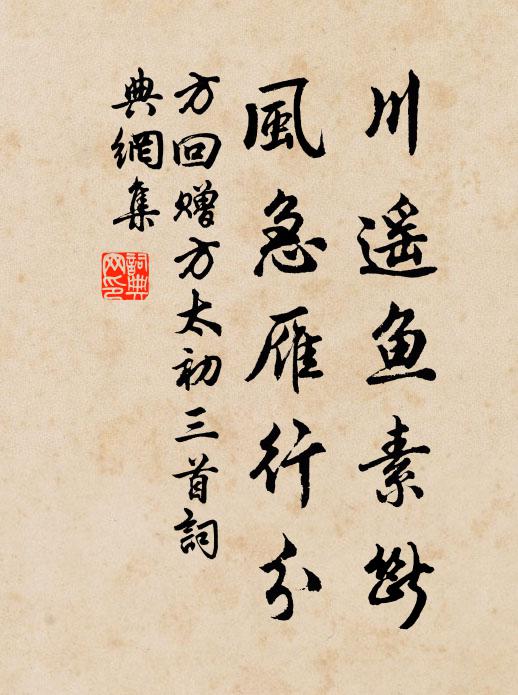 川遥鱼素断
風急雁行分
方回赠方太初三首詞
典網集
詞典网印